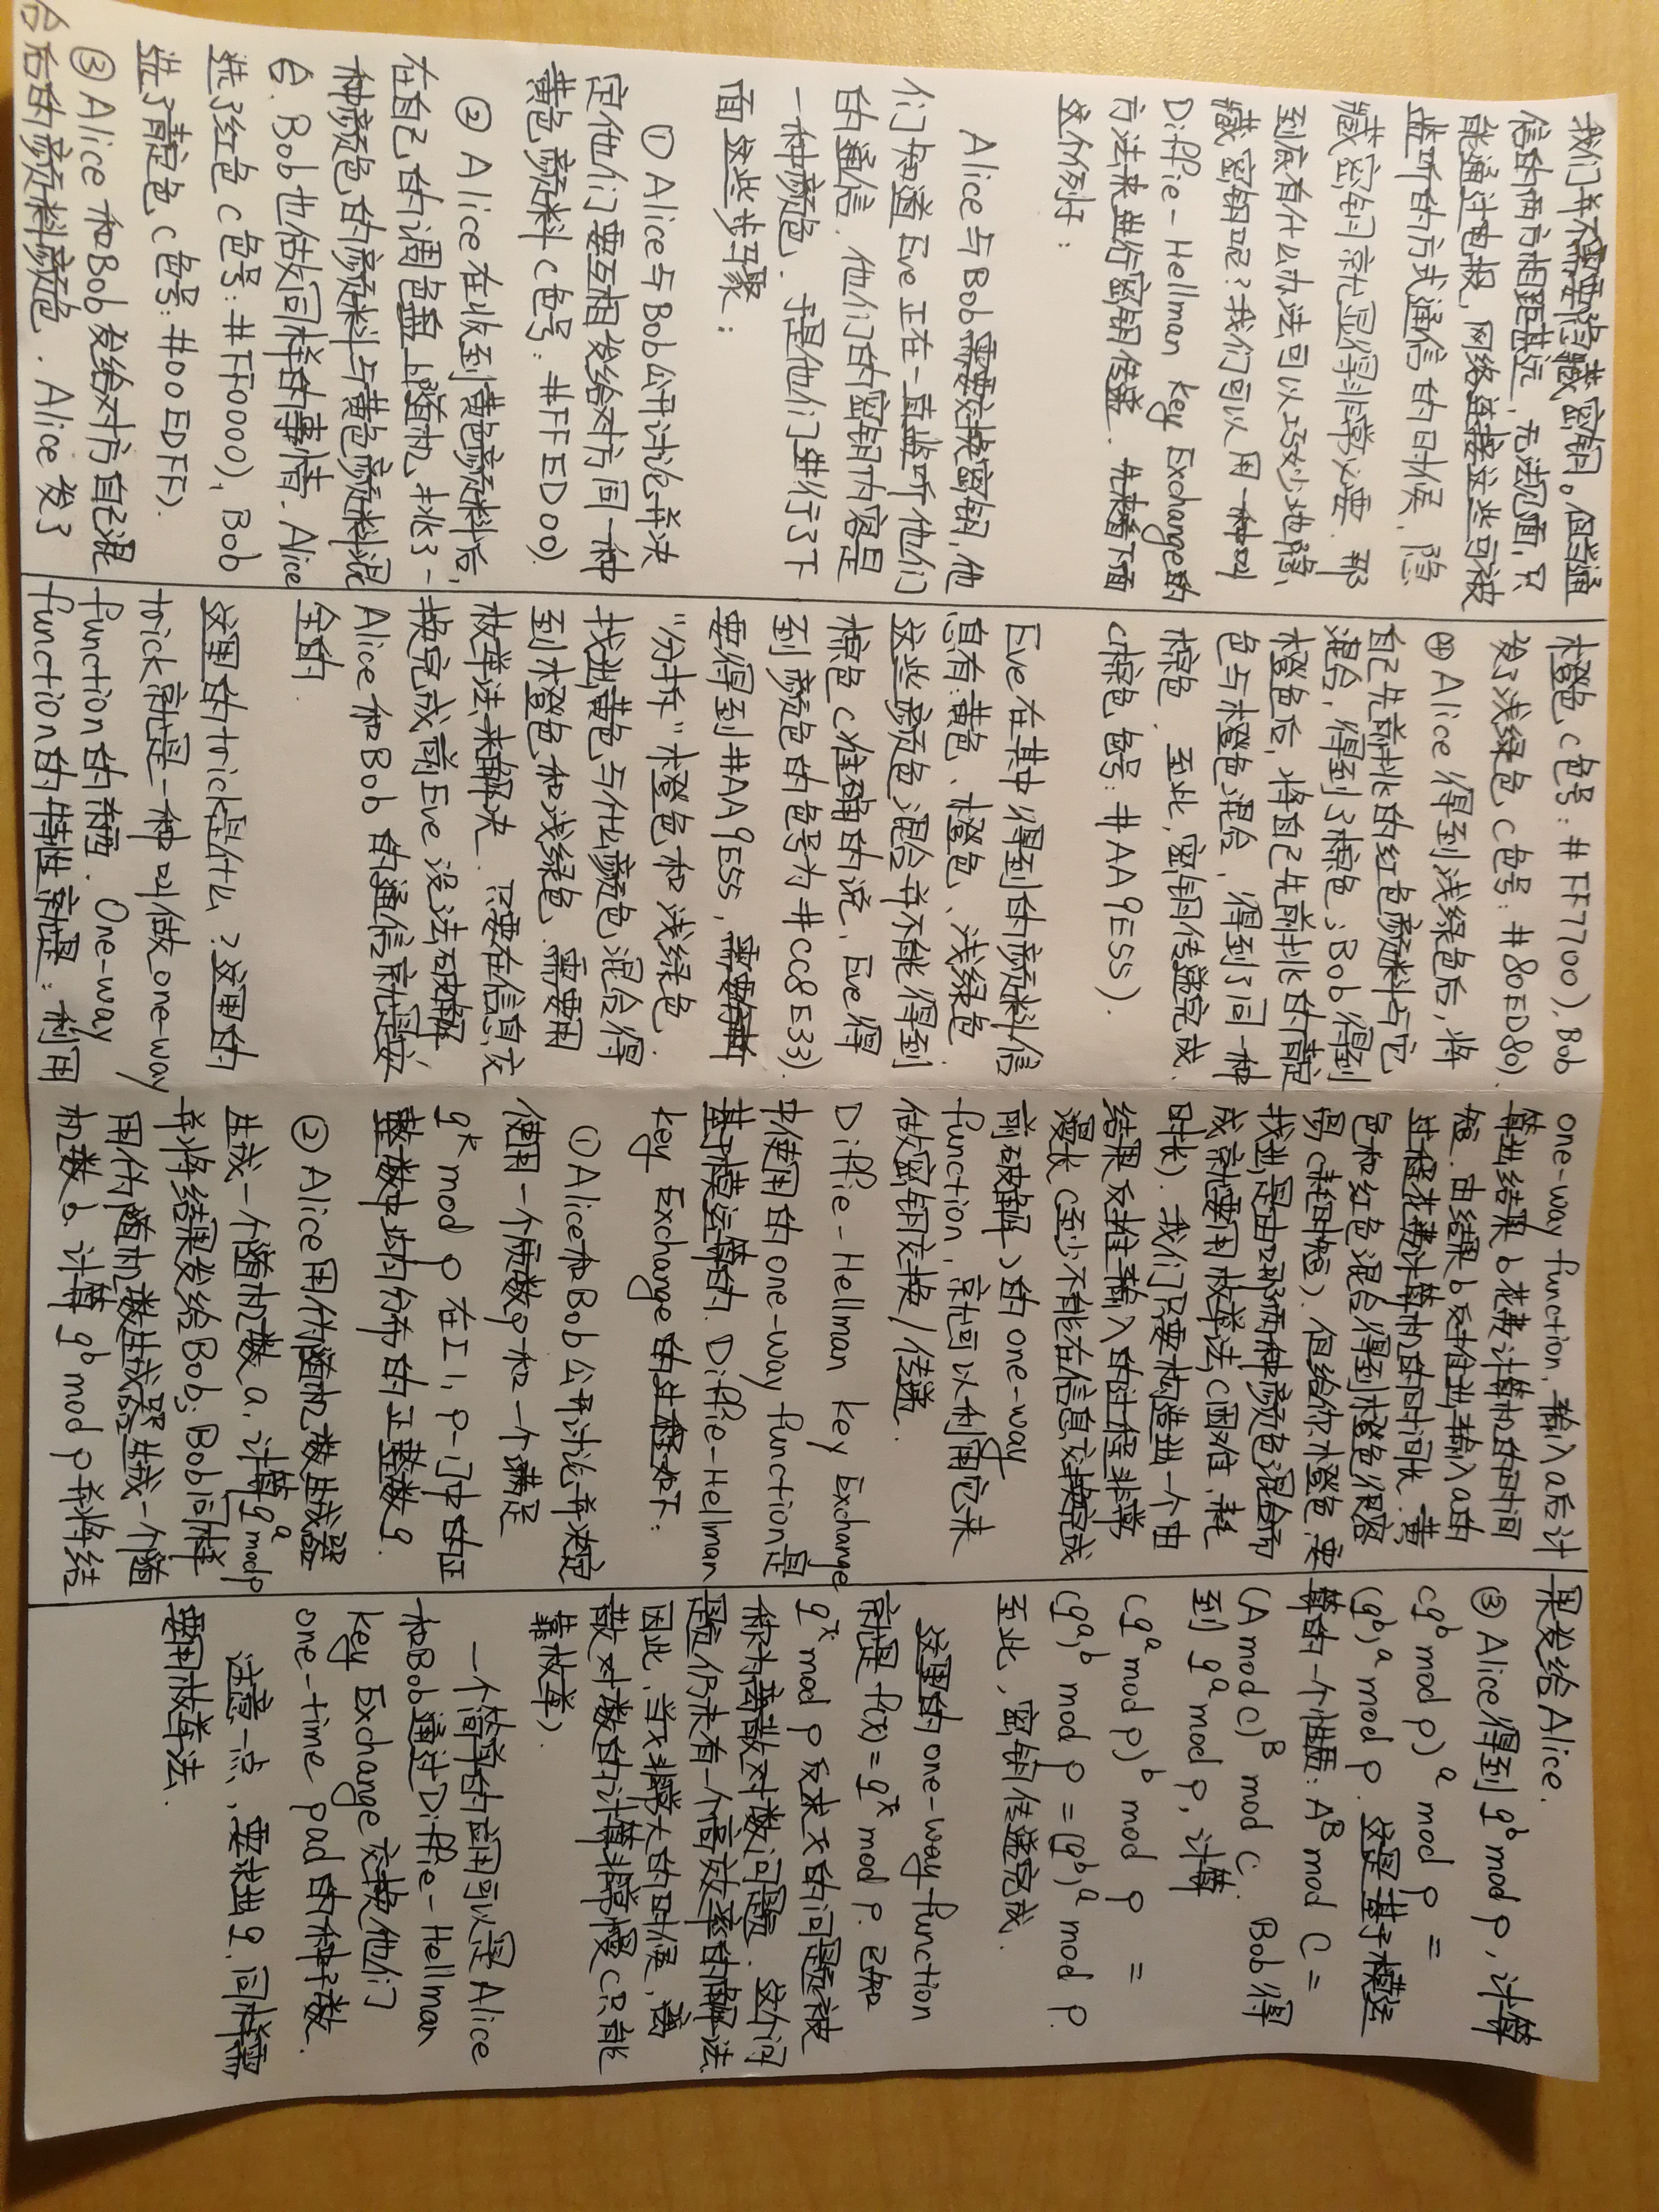 我们并不需要隐藏密钥。但当通
信的两方相距甚远，无法见面，只
能通过电报，网络连接这些可被
监听的方式通信的时候，隐
藏密钥就显得非常必要．那
到底有什么办法可以巧妙地隐
藏密钥呢？我们可以用一种叫
Diffie-Hellman Key Exchange的
方法来进行密钥传递．先来看下面
这个例子：
Alice与Bob需要交换密钥，他
们知道Eve正在一直监听他们
的通信．他们的密钥内容是
一种颜色．于是他们进行了下
面这些步骤：
① Alice与Bob公开讨论并决
定他们要互相发给对方同一种
黄色颜料（色号：#FFED00）．
② Alice在收到黄色颜料后，
在自己的调色盘上随机挑了一
种颜色的颜料与黄色颜料混
合．Bob也做同样的事情．Alice
选了红色（色号：#FF0000），Bob
选了青定色（色号：#00EDFF）．
③ Alice和Bob发给对方自己混
合后的颜料颜色．Alice发了
橙色（色号：#FF7700），Bob
发了浅绿色（色号：#80ED80）．
④ Alice得到浅绿色后，将
自己先前挑的红色颜料与它
混合，得到了棕色；Bob得到
橙色后，将自己先前挑的青定
色与橙色混合，得到了同一种
棕色．至此，密钥传递完成．
（棕色色号：#AA9E55）．
Eve在其中得到的颜料信
息有：黄色、橙色、浅绿色．
这些颜色混合并不能得到
棕色（准确的说，Eve得
到颜色的色号为#CC8E33）．
要得到#AA9E55，需要分析
“分拆”橙色和浅绿色．
找出黄色与什么颜色混合得
到橙色和浅绿色．需要用
枚举法来解决．只要在信息交
换完成前Eve没法破解，
Alice和Bob的通信就是安
全的．
这里的trick是什么？这里的
trick就是一种叫做one-way
function的东西．One-way
function的特性就是：利用
one-way function，输入a后计
算出结果b花费计算机的时间
短．由结果b反推出输入a的
过程花费计算机的时间长．黄
色和红色混合得到橙色很容
易（耗时短）．但给你橙色，要
找出是由哪两种颜色混合而
成就要用枚举法（困难，耗
时长）．我们只要构造出一个由
结果反推输入的过程非常
漫长（至少不能在信息交换完成
前破解）的one-way
function，就可以利用它来
做密钥交换/传递．
Diffie-Hellman Key Exchange
中使用的one-way function是
基于模运算的．Diffie-Hellman
Key Exchange的过程如下：
①Alice和Bob公开讨论并决定
使用一个质数p和一个满足
g^k mod p 在[1, p-1]中的正
整数中均匀分布的正整数g．
② Alice用伪随机数生成器
生成一个随机数a，计算g^a mod p
并将结果发给Bob；Bob同样
用伪随机数生成器生成一个随
机数b．计算g^b mod p并将结
果发给Alice．
③ Alice得到g^b mod p，计算
(g^b mod p)^a mod p =
(g^b)^a mod p．这是基于模运
算的一个性质：A^B mod C =
(A mod C)^B mod C．Bob得
到g^a mod p，计算
(g^a mod p)^b mod p =
(g^a)^b mod p = (g^b)^a mod p．
至此，密钥传递完成．
这里的one-way function
就是f(x)=g^x mod p．已知
g^x mod p反求x的问题被
称为离散对数问题．这个问
题仍未有一个高效率的解法．
因此，当x非常大的时候，离
散对数的计算非常慢（只能
靠枚举）．
一个简单的应用可以是Alice
和Bob通过Diffie-Hellman
Key Exchange交换他们
one-time pad的种子数．
注意一点，要求出g，同样需
要用枚举法．